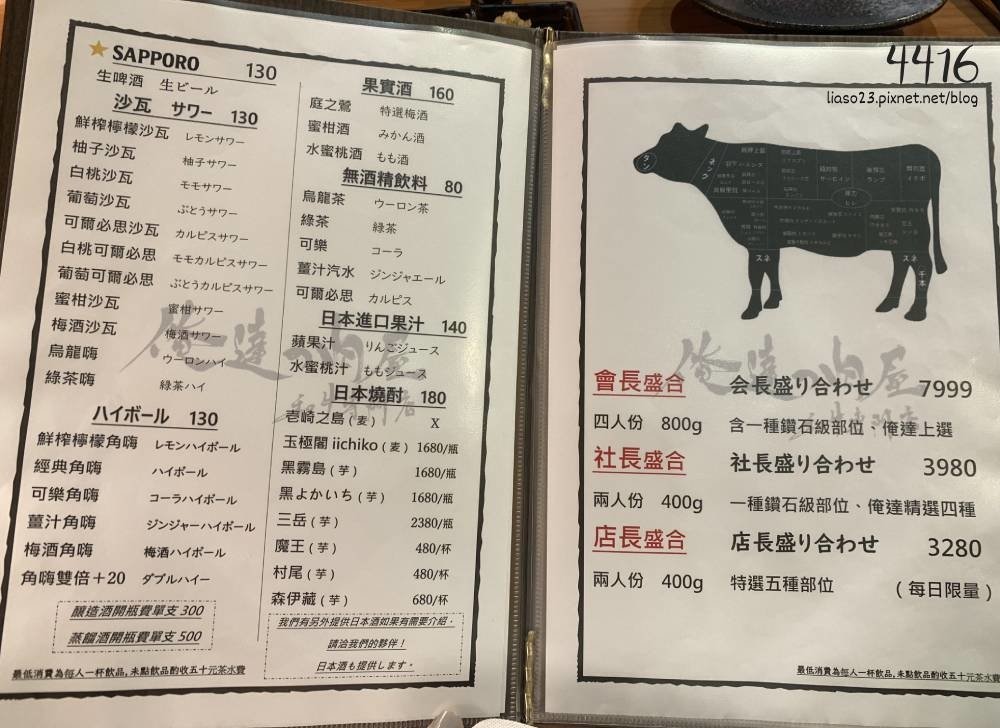 ★ SAPPORO 130
生啤酒 生ビール
沙瓦 サワー 130
鮮榨檸檬沙瓦 レモンサワー
柚子沙瓦 柚子サワー
白桃沙瓦 モモサワー
葡萄沙瓦 ぶとうサワー
可爾必思沙瓦 カルピスサワー
白桃可爾必思 モモカルピスサワー
葡萄可爾必思 ぶとうカルピスサワー
蜜柑沙瓦 蜜柑サワー
梅酒沙瓦 梅酒サワー
烏龍嗨 ウーロンハイ
綠茶嗨 緑茶ハイ
ハイボール 130
鮮榨檸檬角嗨 レモンハイボール
經典角嗨 ハイボール
可樂角嗨 コーラハイボール
薑汁角嗨 ジンジャーハイボール
梅酒角嗨 梅酒ハイボール
角嗨雙倍+20 ダブルハイー
釀造酒開瓶費單支300
蒸餾酒開瓶費單支500
最低消費為每人一杯飲品,未點飲品酌收五十元茶水費
果實酒 160
庭之鶯 特選梅酒
蜜柑酒 みかん酒
水蜜桃酒 もも酒
無酒精飲料 80
烏龍茶 ウーロン茶
綠茶 緑茶
可樂 コーラ
薑汁汽水 ジンジャエール
可爾必思 カルピス
日本進口果汁 140
蘋果汁 りんごジュース
水蜜桃汁 ももジュース
日本燒酎 180
壱崎之島(麦) X
玉極閣 iichiko(麦) 1680/瓶
黑霧島(芋) 1680/瓶
黑よかいち(芋) 1680/瓶
三岳(芋) 2380/瓶
魔王(芋) 480/杯
村尾(芋) 480/杯
森伊藏(芋) 680/杯
我們有另外提供日本酒如果有需要介紹,
請洽我們的夥伴!
日本酒も提供します。
俺達の肉屋
和牛專門店
4416
liaso23.pixnet.net/blog
タン
ネック
スネ
スネ
千本
俺達の肉屋
會長盛合 会長盛り合わせ 7999
四人份 800g 含一種鑽石級部位、俺達上選
社長盛合 社長盛り合わせ 3980
兩人份 400g 一種鑽石級部位、俺達精選四種
店長盛合 店長盛り合わせ 3280
兩人份 400g 特選五種部位 (每日限量)
最低消費為每人一杯飲品,未點飲品酌收五十元茶水費